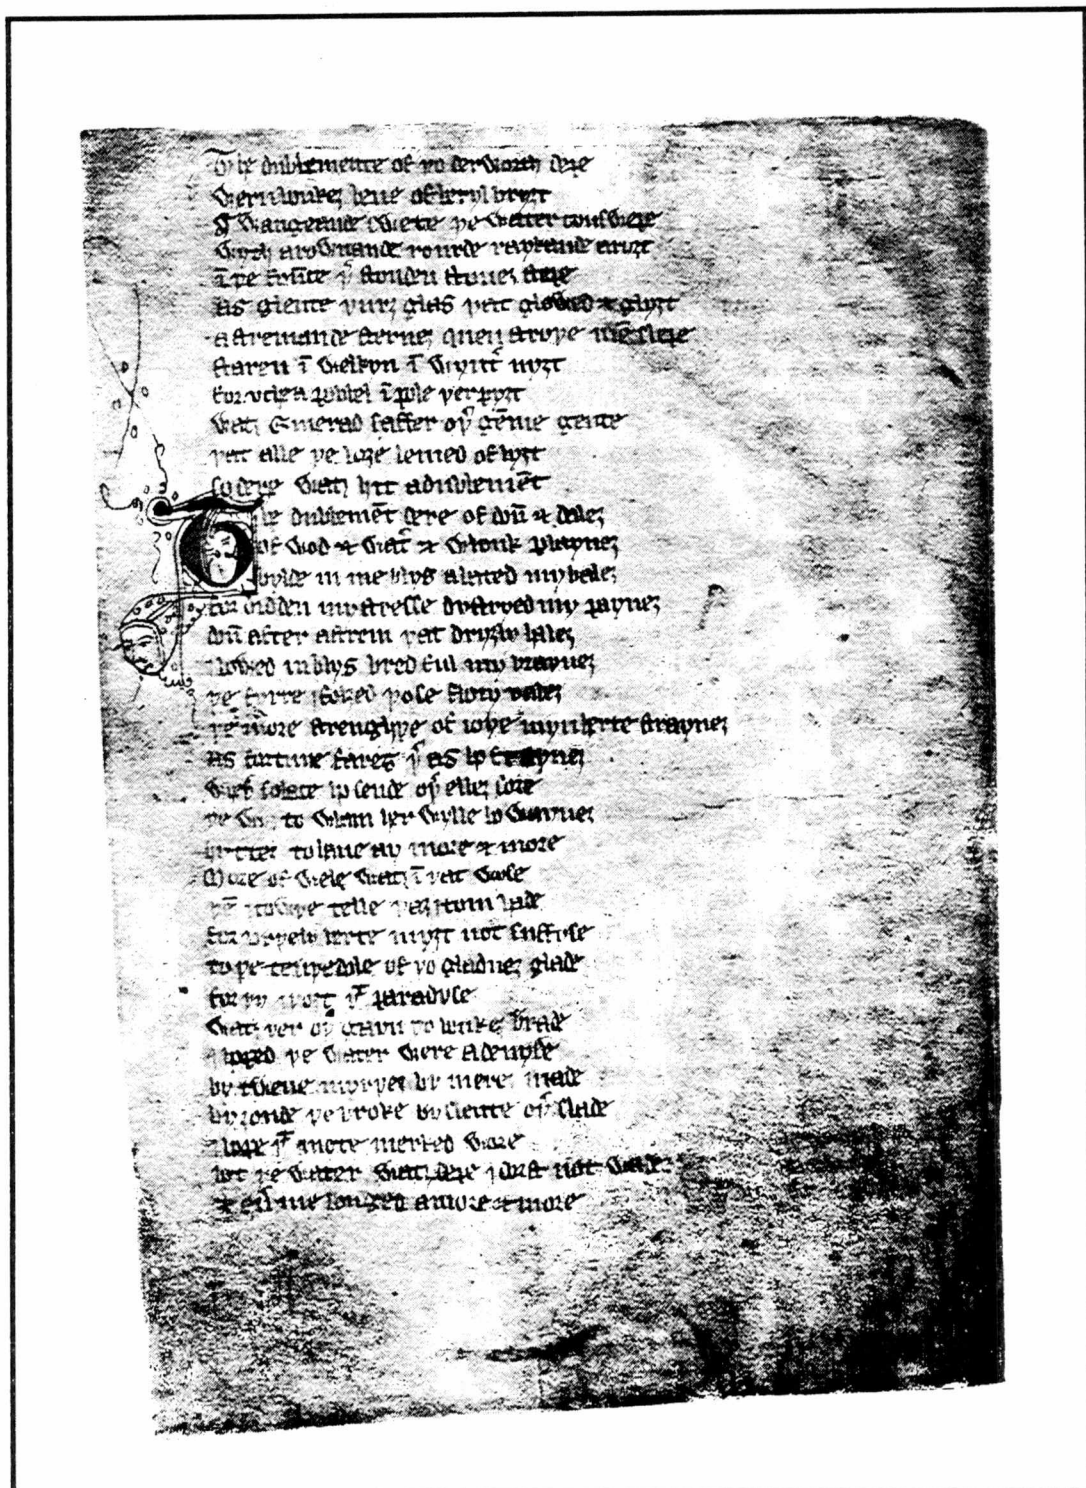 The dubbemente of þo derworth depe
Wern bonkez bene of beryl bryȝt
Swangeande swete þe water con swepe
Wyth a rownande rourde raykande aryȝt
I̅ þe founce þ̉ stonden stonez stepe
As glente þurȝ glas þat glowed & glyȝt
A stremande sternez quen stroþe me̅ slepe
Staren i̅ welkyn i̅ wynt̉ nyȝt
For vche a pobbel i̅ pole þer pyȝt
Watz Emerad saffer oþ̉ ge̅me gente
þat alle þe loȝe lemed of lyȝt
So dere watz hit adubbeme̅t
The dubbeme̅t dere of dou̅ & dalez
of wod & wat̉ & wlonk playnez
bylde in me blys abated my balez
for didden my stresse dystryed my paynez
dou̅ after a strem þat dryȝly halez
I bowed in blys bred ful my braynez
þe fyrre I folȝed þose floty valez
þe̅ more strenghþe of ioye myn herte straynez
As fortune fares þ̉ as ho fraynez
wheþ̉ solace ho sende oþ̉ ellez sore
þe wyȝ to wham her wylle ho waynez
hyttez to haue ay more & more
More of wele watz i̅ þat wyse
þe̅ I cowþe telle þaȝ I tom hade
for vrþely herte myȝt not suffyse
to þe tenþe dole of þo gladnez glade
for þy I þoȝt þᵗ paradyse
watz þer oþ̉ gayn þo bonkez brade
I hoped þe water were a deuyse
bytwene myrþez by merez made
byȝonde þe broke by slente oþ̉ slade
I hope þᵗ mote merked wore
bot þe water watz depe I dorst not wade
& eủ me longed a more & more